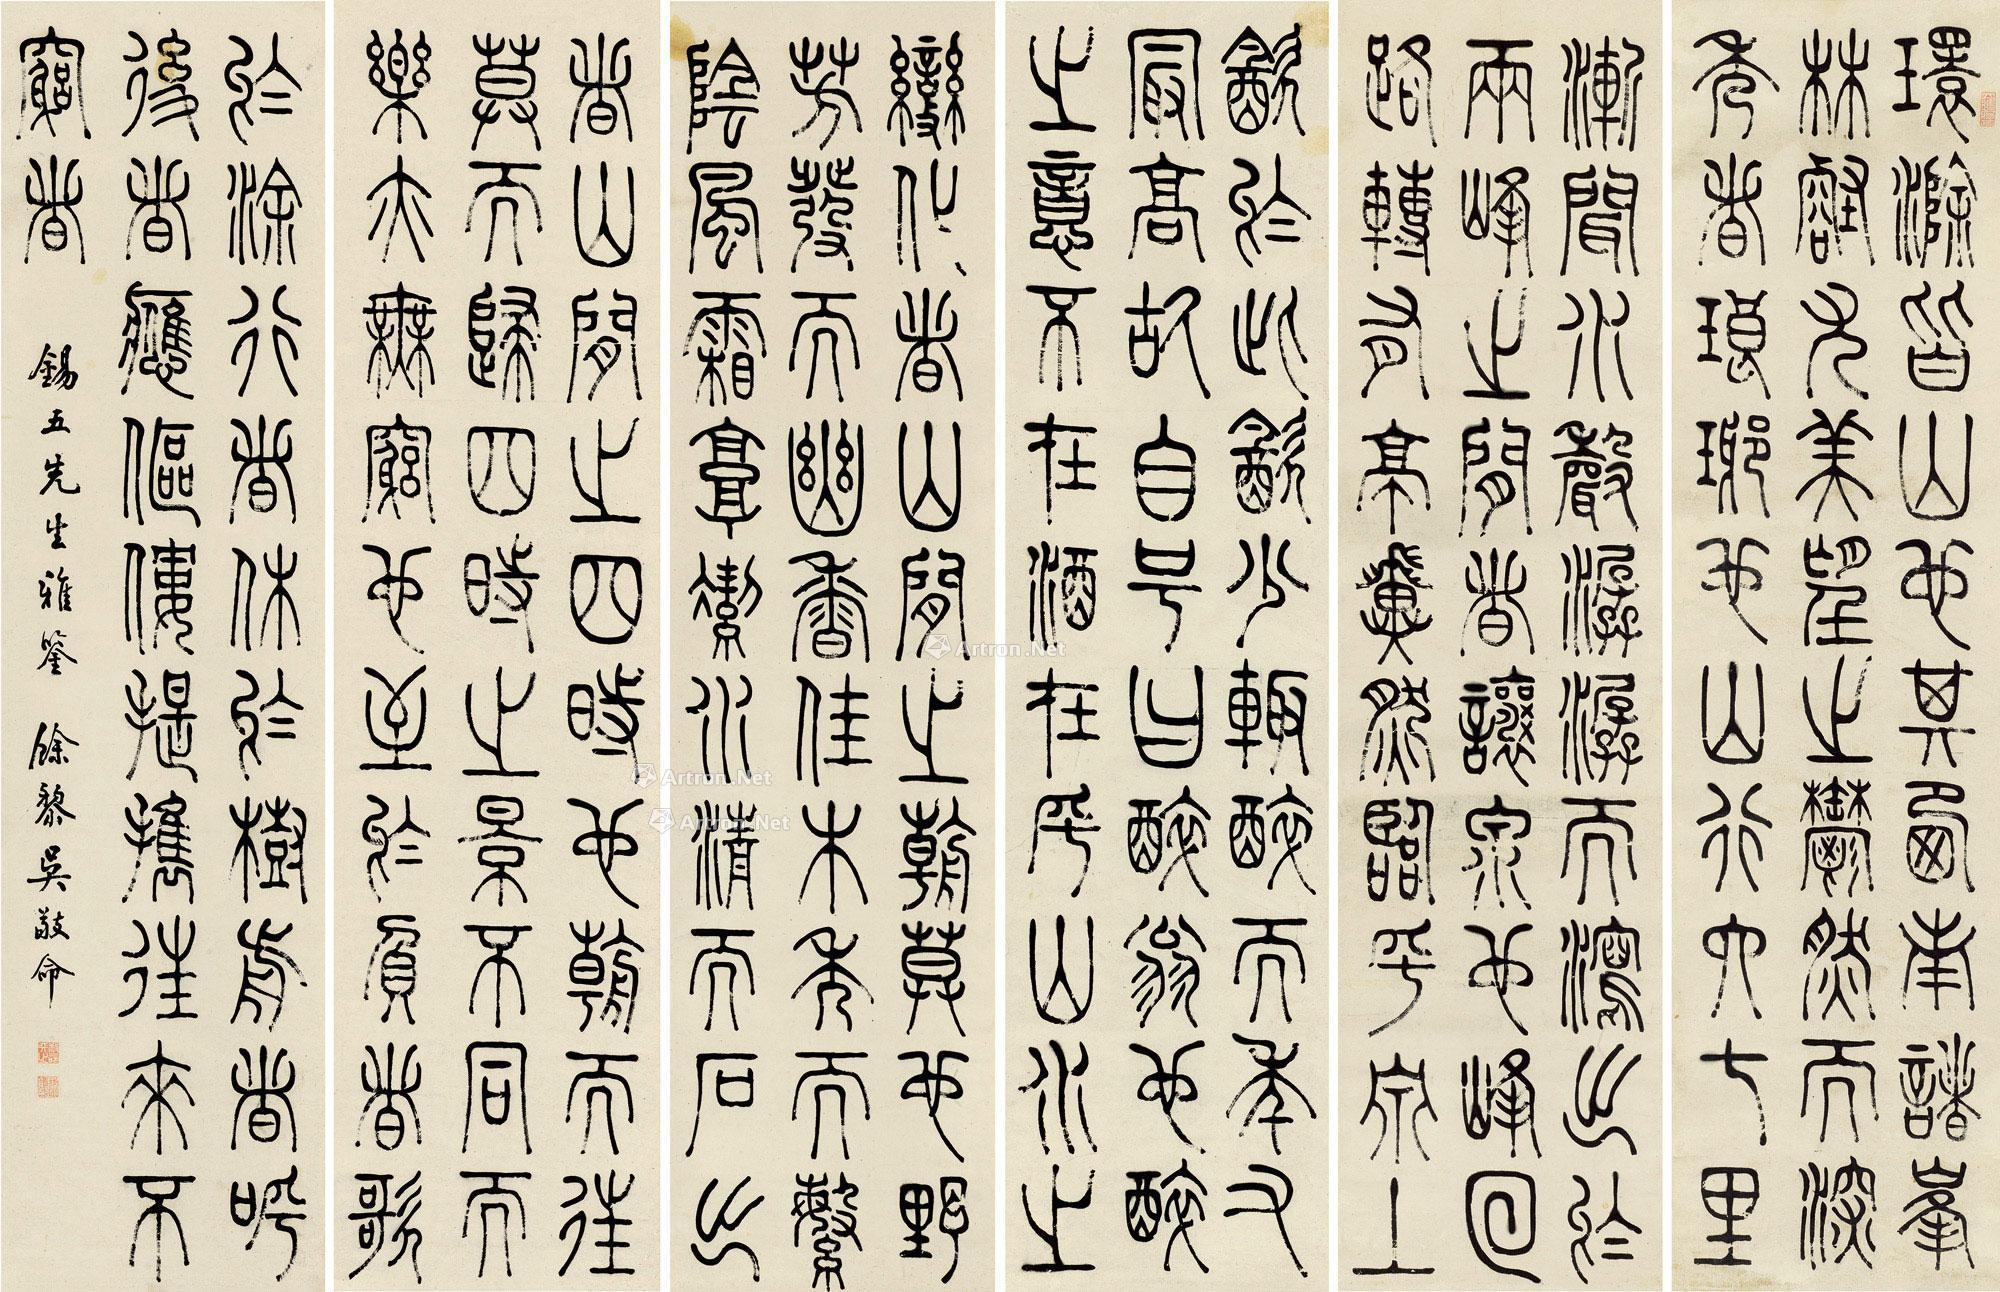 環滁皆山也其西南諸峯
林壑尤美望之鬱然而深
秀者琅琊也山行六七里
漸聞水聲潺潺而瀉出於
兩峰之間者讓泉也峰回
路轉有亭翼然臨乎泉上
飲於此飲少輒醉而年又
最高故自号曰醉翁也醉
之意不在酒在乎山水之
變化者山間之朝莫也野
芳發而幽香佳木秀而繁
陰風霜高絜水清而石出
者山間之四時也朝而往
莫而歸四時之景不同而
樂亦無窮也至於負者歌
於涂行者休於樹前者呼
後者應傴僂提攜往來不
窮者
錫五先生雅鑒 餘黎吳敬命
Artron.Net
Artron.Net
Artron.Net